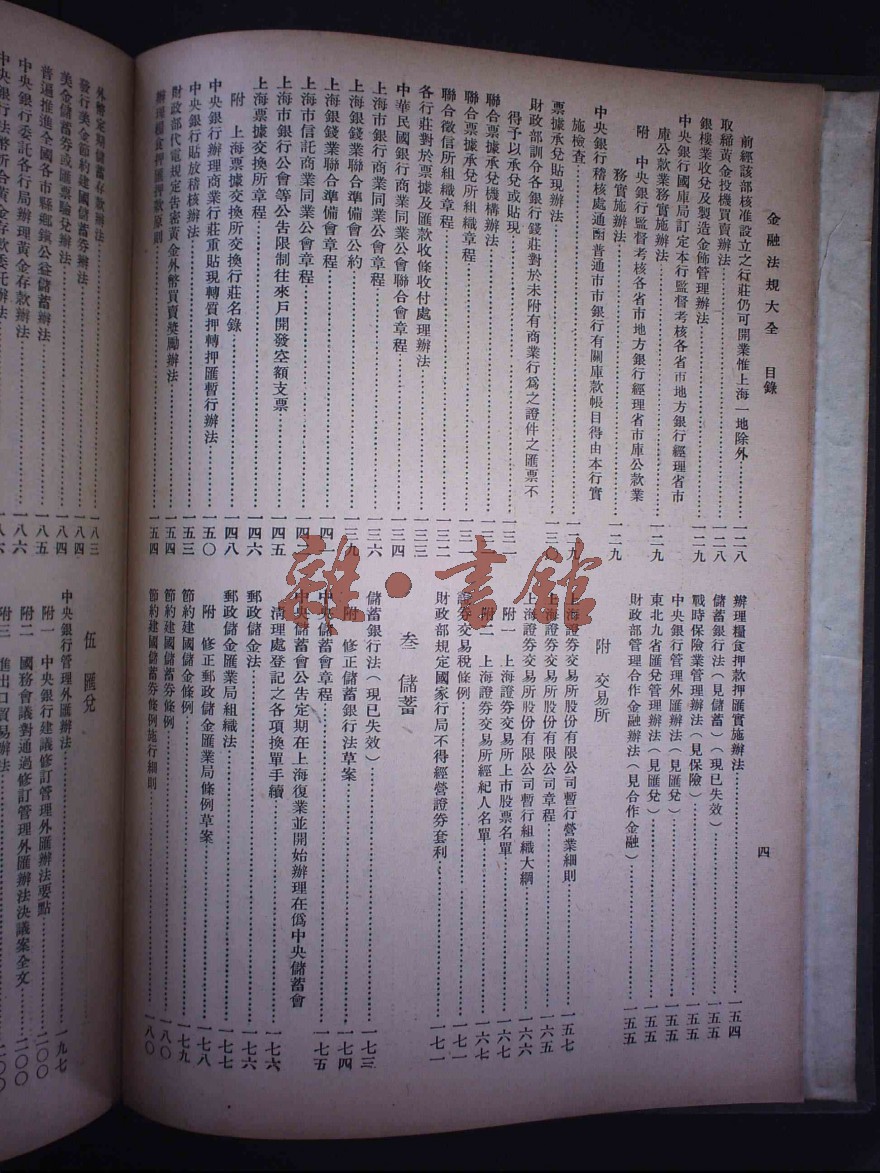 金融法規大全　目錄
四
前經該部核准設立之行莊仍可開業惟上海一地除外…………一二八
取締黃金投機買賣辦法…………一二八
銀樓業收兌及製造金飾管理辦法…………一二九
中央銀行國庫局訂定本行監督考核各省市地方銀行經理省市
庫公款業務實施辦法…………一二九
附　中央銀行監督考核各省市地方銀行經理省市庫公款業
務實施辦法…………一二九
中央銀行稽核處通函普通市市銀行有關庫款帳目得由本行實
施檢查…………一二九
票據承兌貼現辦法…………一三〇
財政部訓令各銀行錢莊對於未附有商業行爲之證件之匯票不
得予以承兌或貼現…………一三一
聯合票據承兌機構辦法
聯合票據承兌所組織章程
聯合徵信所組織章程…………一三二
各行莊對於票據及匯款收條收付處理辦法…………一三三
中華民國銀行商業同業公會聯合會章程…………一三四
上海市銀行商業同業公會章程…………一三六
上海銀錢業聯合準備會公約…………一三九
上海銀錢業聯合準備會章程…………一四一
上海市信託商業同業公會章程
上海市銀行公會等公告限制往來戶開發空額支票…………一四五
上海票據交換所章程…………一四六
附　上海票據交換所交換行莊名錄…………一四八
中央銀行辦理商業行莊重貼現轉質押轉押匯暫行辦法…………一五〇
中央銀行貼放稽核辦法…………一五三
財政部代電規定告密黃金外幣買賣獎勵辦法…………一五四
辦理糧食押匯押款原則…………一五四
辦理糧食押款押匯實施辦法…………一五四
儲蓄銀行法（見儲蓄）（現已失效）…………一五五
戰時保險業管理辦法（見保險）…………一五五
中央銀行管理外匯辦法（見匯兌）…………一五五
東北九省匯兌管理辦法（見匯兌）…………一五五
財政部管理合作金融辦法（見合作金融）…………一五五
附　交易所
上海證券交易所股份有限公司暫行營業細則…………一五七
上海證券交易所股份有限公司章程…………一六五
上海證券交易所股份有限公司暫行組織大綱…………一六六
附一　上海證券交易所上市股票名單…………一六七
附二　上海證券交易所經紀人名單…………一六七
證券交易稅條例…………一七一
財政部規定國家行局不得經營證券套利…………一七一
叁　儲蓄
儲蓄銀行法（現已失效）…………一七三
附　修正儲蓄銀行法草案…………一七四
中央儲蓄會章程…………一七五
中央儲蓄會公告定期在上海復業並開始辦理在僞中央儲蓄會
清理處登記之各項換單手續…………一七六
郵政儲金法…………一七六
郵政儲金匯業局組織法…………一七七
附　修正郵政儲金匯業局條例草案…………一七八
節約建國儲金條例…………一七九
節約建國儲蓄券條例…………一八〇
節約建國儲蓄券條例施行細則…………一八〇
外幣定期儲蓄存款辦法…………一八三
發行美金節約建國儲蓄券辦法…………一八四
美金儲蓄券或匯票驗兌辦法…………一八四
普遍推進全國各市縣鄉鎮公益儲蓄辦法…………一八五
中央銀行委託各行局辦理黃金存款辦法…………一八六
中央銀行法幣折合黃金存款委託辦法
伍　匯兌
中央銀行管理外匯辦法…………一九七
附一　中央銀行建議修訂管理外匯辦法要點…………二〇〇
附二　國務會議對通過修訂管理外匯辦法決議案全文…………二〇〇
附三　進出口貿易辦法…………二〇〇
雜·書館